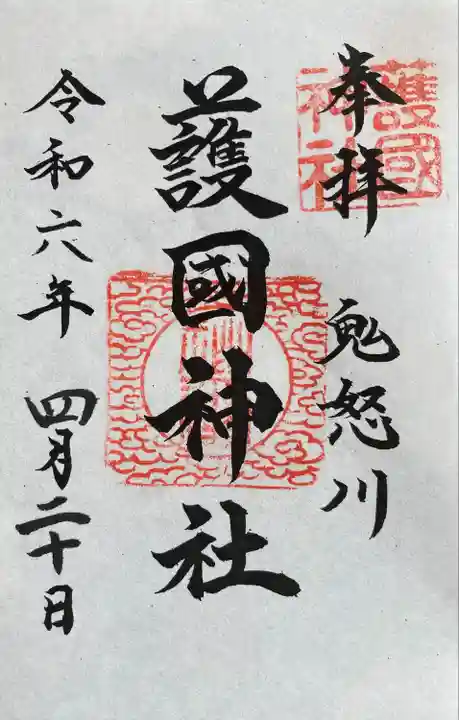 奉拝
護國神社
鬼怒川
護國神社
令和六年 四月二十日